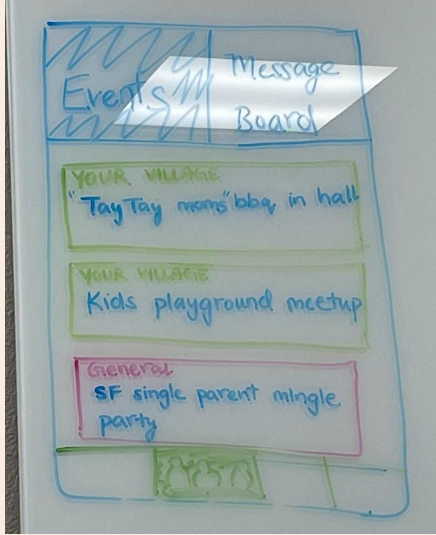 Events
Message
Board
YOUR VILLAGE
"TayTay moms" bbq in hall
YOUR VILLAGE
Kids playground meetup
General
SF single parent mingle
party